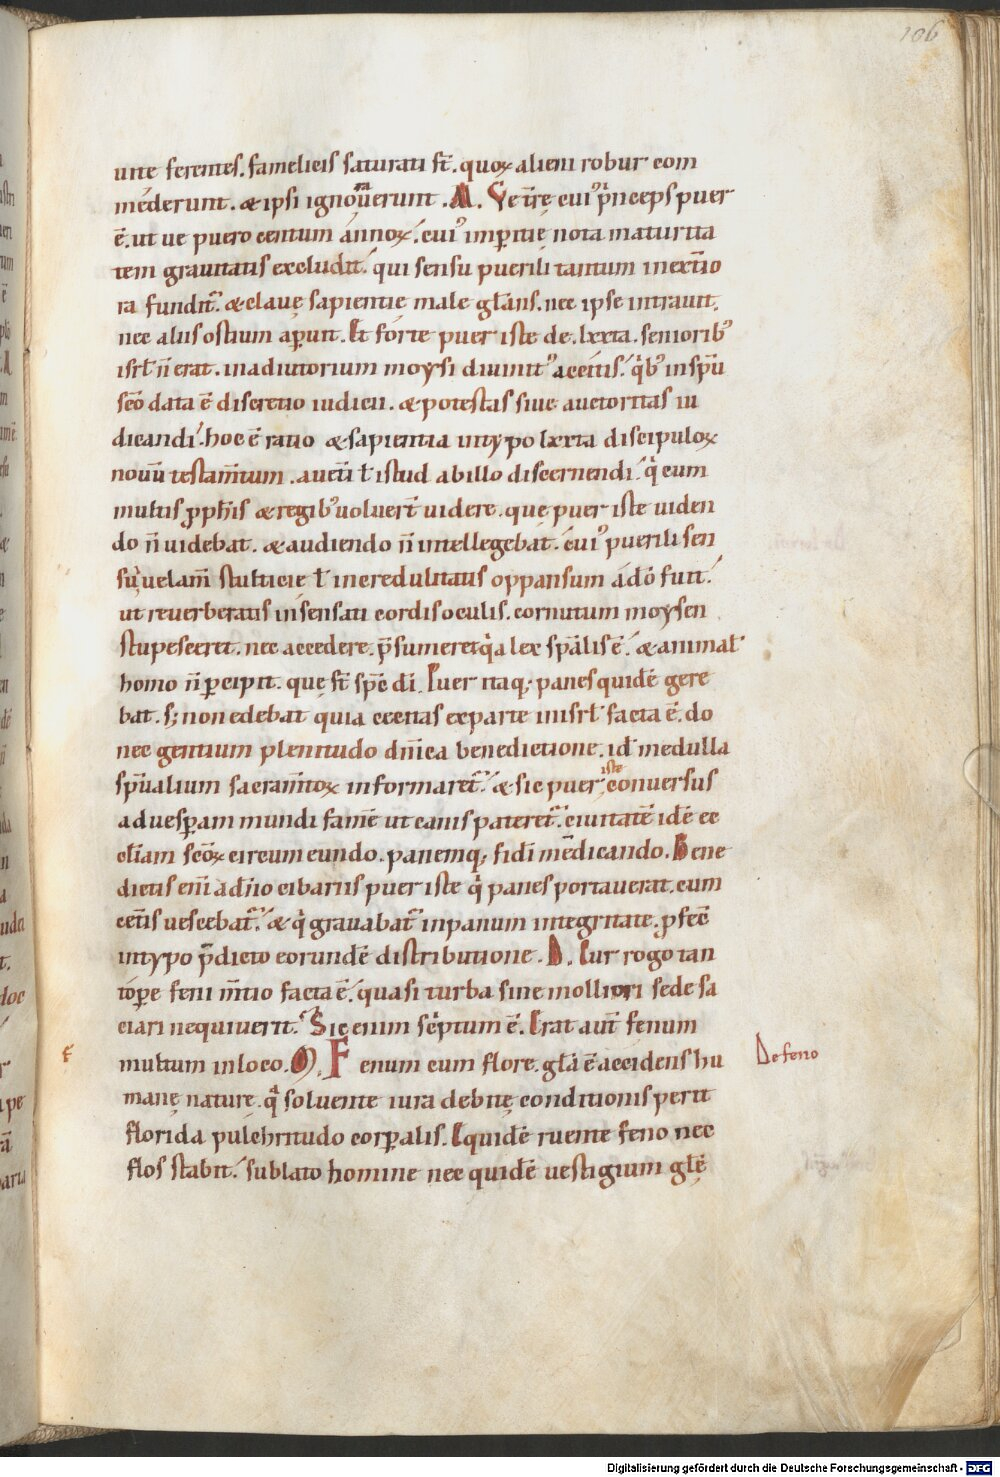 106
unt ferentes. famelicis saturati st̄. quoꝝ alieni robur com
mederunt. & ipsi ignoraverunt. M. Ve t̄re cui᾽ p̄nceps puer
ē. ut ve puero centum annoꝝ. cui᾽ impericię nota maturita
tem gravitatis excludit. qui sensu puerili tantum in ext̄io
ra fundit᾽. & clavę sapientię male gl̄ans. nec ipse intravit.
nec aliis ostium apuit. Et forte puer iste de. lxxta. seniorib᾽
isrl̄ n̄ erat. in adiutorium moysi divinit᾽ accitis. qͥb᾽ in sp̄u
sc̄o data ē discretio iudicii. & potestas sive auctoritas iu
dicandi. hoc ē ratio & sapientia in typo lxxta discipuloꝝ
novū testam̄tum. auc̄ti t̄ istud ab illo discernendi. qͥ cum
multis ꝓph̄is & regib᾽ voluert̄ videre. quę puer iste viden
do n̄ videbat. & audiendo n̄ intellegebat. cui᾽ puerili sen
sui velam̄ stulticię t̄ incredulitatis oppansum adō fuit.
ut reverberatis insensati cordis oculis. cornutum moysen
stupesceret. nec accedere. p̄sumeret qͥa lex sp̄alis ē. & animal̄
homo n̄ pcipit. quę st̄ sp̄c dī. Puer itaq; panes quidē gere
bat. s; non edebat quia cecitas ex parte in isrl̄ facta ē. do
nec gentium plenitudo dn̄ica benedictione. id̄ medulla
sp̄ualium sacram̄toꝝ informaret᾽. & sic puer iste conversus
ad vespam mundi famē ut canis pateret᾽. civitatē idē ec
cl̄iam sc̄oꝝ circumeundo. panemq; fidī mēdicando. Bene
dictis eni adn̄io cibariis puer iste qͥ panes portaverat. cum
cet̄is vescebat᾽. & qͥ gravabat᾽ in panum integritate. ꝓfec̄
in typo p̄dicto eorundē distributione. D. Cur rogo tan
tope feni m̄tio facta ē. quasi turba sine molliori sede sa
ciari nequiverit. Sic enim sc̄ptum ē. Erat aut̄ fenum
multum in loco. M. Fenum cum flore. gl̄a ē accidens hu
manę naturę. qͣ solvente iura debitę conditionis perit
florida pulchritudo corpalis. Equidē ruente feno nec
flos stabit. sublato homine nec quidē vestigium gl̄ę
De feno
Digitalisierung gefördert durch die Deutsche Forschungsgemeinschaft - DFG